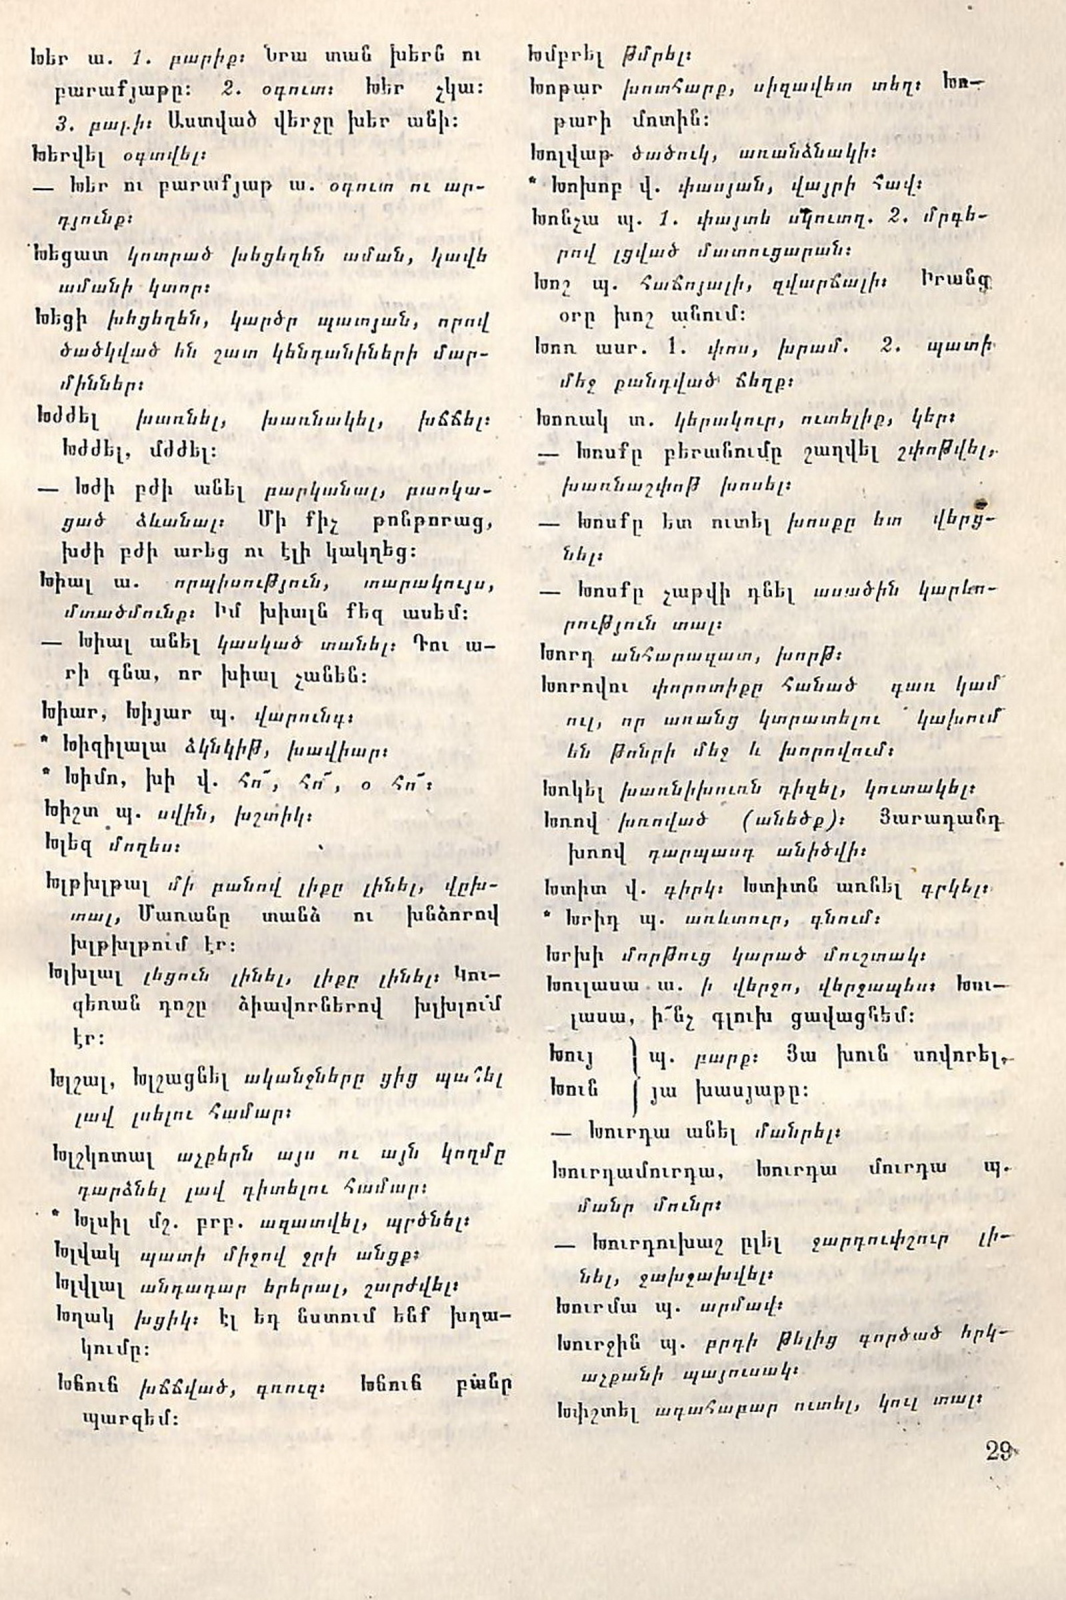 Խեր ա. 1. բարիք։ Նրա տան խերն ու
բարաքյաթը։ 2. օգուտ։ Խեր չկա։
3. բարի։ Աստված վերջը խեր անի։
Խերվել օգտվել։
— Խեր ու բարաքյաթ ա. օգուտ ու ար-
դյունք։
Խեցատ կոտրած խեցեղեն աման, կավե
ամանի կտոր։
Խեցի խեցեղեն, կարծր պատյան, որով
ծածկված են շատ կենդանիների մար-
մինները։
Խժժել խառնել, խառնակել, խճճել։
Խժժել, մժժել։
— Խժի բժի անել բարկանալ, բարկա-
ցած ձևանալ։ Մի քիչ թոնթորաց,
խժի բժի արեց ու էլի կակղեց։
Խիալ ա. որպիսություն, տարակույս,
մտածմունք։ Իմ խիալն քեզ ասեմ։
— Խիալ անել կասկած տանել։ Դու ա-
րի գնա, որ խիալ չանեն։
Խիար, Խիյար պ. վարունգ։
* Խիզիլալա ձկնկիթ, խավիար։
* Խիմո, խի վ. հո՜, հո՜, օ հո՜։
Խիշտ պ. սվին, խշտիկ։
Խլեզ մողես։
Խլթխլթալ մի բանով լիքը լինել, վըխ-
տալ, Մառանը տանձ ու խնձորով
խլթխլթում էր։
Խլխլալ լեցուն լինել, լիքը լինել։ Կու-
զեռան դոշը ձիավորներով խլխլում
էր։
Խլշալ, Խլշացնել ականջները ցից պահել
լավ լսելու համար։
Խլշկոտալ աչքերն այս ու այն կողմը
դարձնել լավ դիտելու համար։
* Խլսիլ մշ. բրբ. ազատվել, պրծնել։
Խլվակ պատի միջով ջրի անցք։
Խլվլալ անդադար երերալ, շարժվել։
Խղակ խցիկ։ էլ եդ նստում ենք խղա-
կումը։
Խնուն խճճված, գռուզ։ Խնուն բանը
պարզեմ։
Խմբրել թմրել։
Խոթար խոտհարք, սիզավետ տեղ։ Խո-
թարի մոտին։
Խոլվաթ ծածուկ, առանձնակի։
* Խոխոբ վ. փասյան, վայրի հավ։
Խոնչա պ. 1. փայտե սկուտղ. 2. մրգե-
րով լցված մատուցարան։
Խոշ պ. հաճոյալի, զվարճալի։ Իրանց
օրը խոշ անում։
Խոռ ասր. 1. փոս, խրամ. 2. պատի
մեջ քանդված ճեղք։
Խոռակ տ. կերակուր, ուտելիք, կեր։
— Խոսքը բերանումը շաղվել շփոթվել,
խառնաշփոթ խոսել։
— Խոսքը ետ ուտել խոսքը ետ վերց-
նել։
— Խոսքը չաթվի դնել ասածին կարևո-
րություն տալ։
Խորդ անհարազատ, խորթ։
Խորովու փորոտիքը հանած գառ կամ
ուլ, որ առանց կտրատելու կախում
են թոնրի մեջ և խորովում։
Խոկել խառնիխուռն դիզել, կուտակել։
Խռով խռոված (անեծք)։ Յարադանդ
խռով դարպասդ անիծվի։
Խտիտ վ. գիրկ։ Խտիտն առնել գրկել։
* Խրիդ պ. առևտուր, գնում։
Խրխի մորթուց կարած մուշտակ։
Խուլասա ա. ի վերջո, վերջապես։ Խու-
լասա, ի՞նչ գլուխ ցավացնեմ։
Խույ } պ. բարք։ Յա խուն սովորել,
Խուն } յա խասյաթը։
— Խուրդա անել մանրել։
Խուրդամուրդա, Խուրդա մուրդա պ.
մանր մունր։
— Խուրդուխաշ ըլել ջարդուփշուր լի-
նել, ջախջախվել։
Խուրմա պ. արմավ։
Խուրջին պ. բրդի թելից գործած երկ-
աչքանի պայուսակ։
Խփշտել ագահաբար ուտել, կուլ տալ։
29